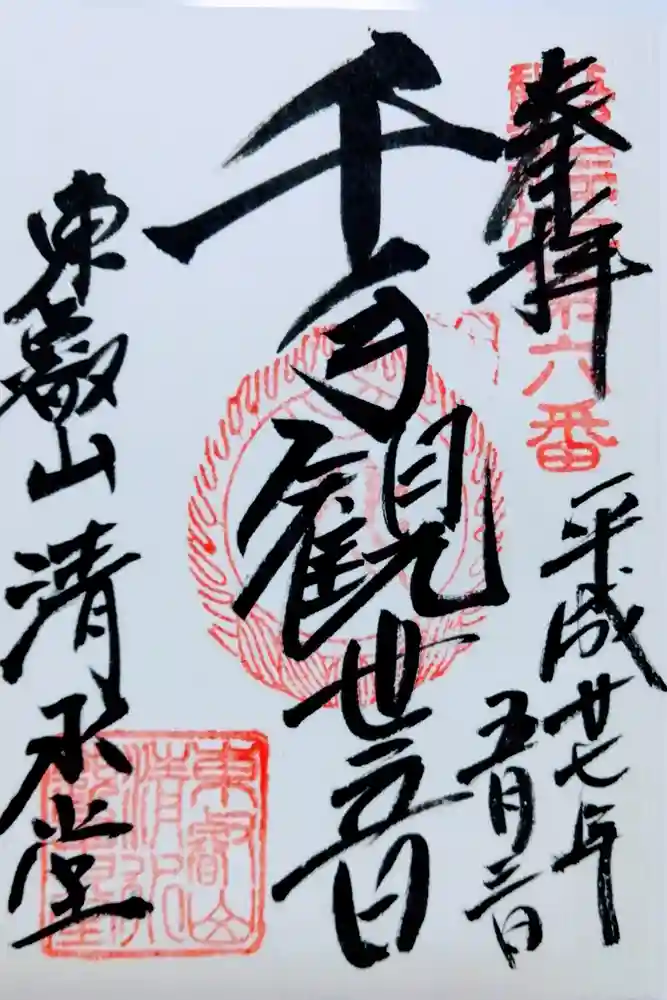 奉拝
六番
平成廿七年
五月三日
千手観世音
東叡山 清水堂
東叡山
清水
観音堂